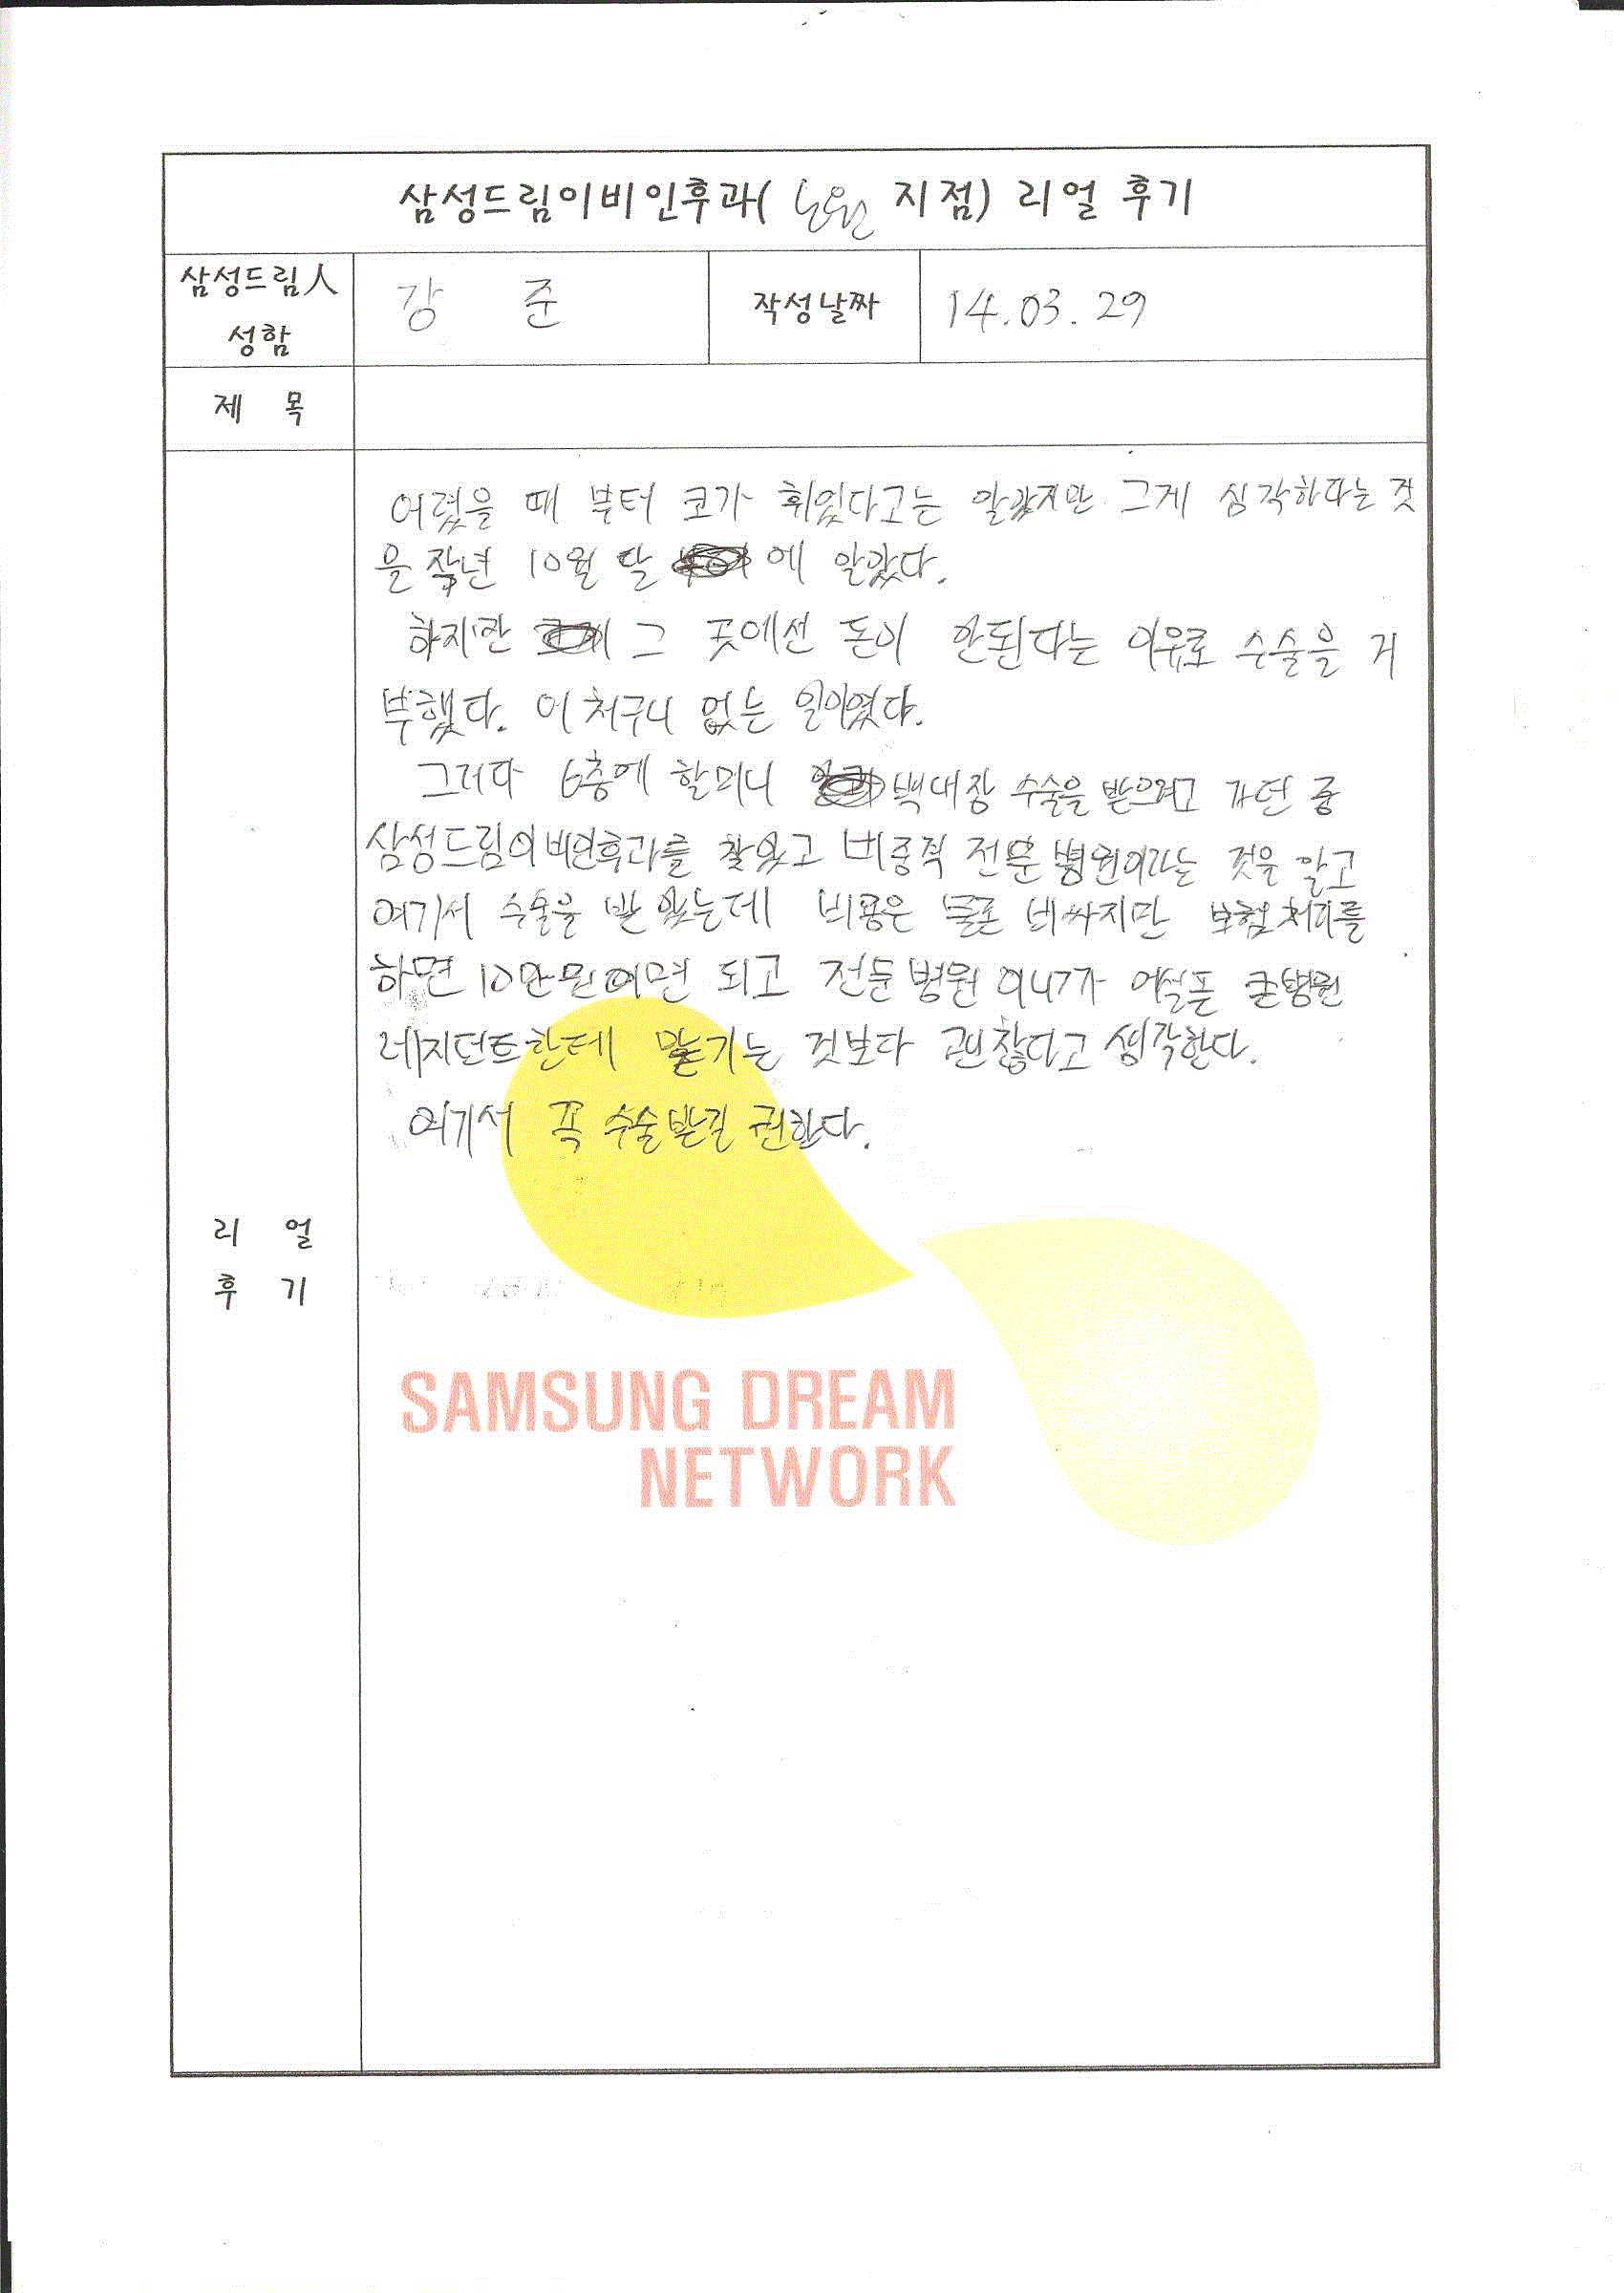 삼성드림이비인후과( 노원 지점) 리얼 후기
삼성드림人 성함
강 준
작성날짜
14.03.29
제 목
리 얼
후 기
어렸을 때 부터 코가 휘었다고는 알았지만 그게 심각하다는 것
을 작년 10월 달 에 알았다.
하지만 그 곳에선 돈이 안된다는 이유로 수술을 거
부했다. 어처구니 없는 일이였다.
그러다 6층에 할머니 백내장 수술을 받으려고 가던 중
삼성드림이비인후과를 찾았고 비중격 전문 병원이라는 것을 알고
여기서 수술을 받았는데 비용은 물론 비싸지만 보험처리를
하면 10만원이면 되고 전문병원 이니가 어설픈 큰병원
레지던트한테 맡기는 것보다 괜찮다고 생각한다.
여기서 꼭 수술받길 권한다.
SAMSUNG DREAM
NETWORK